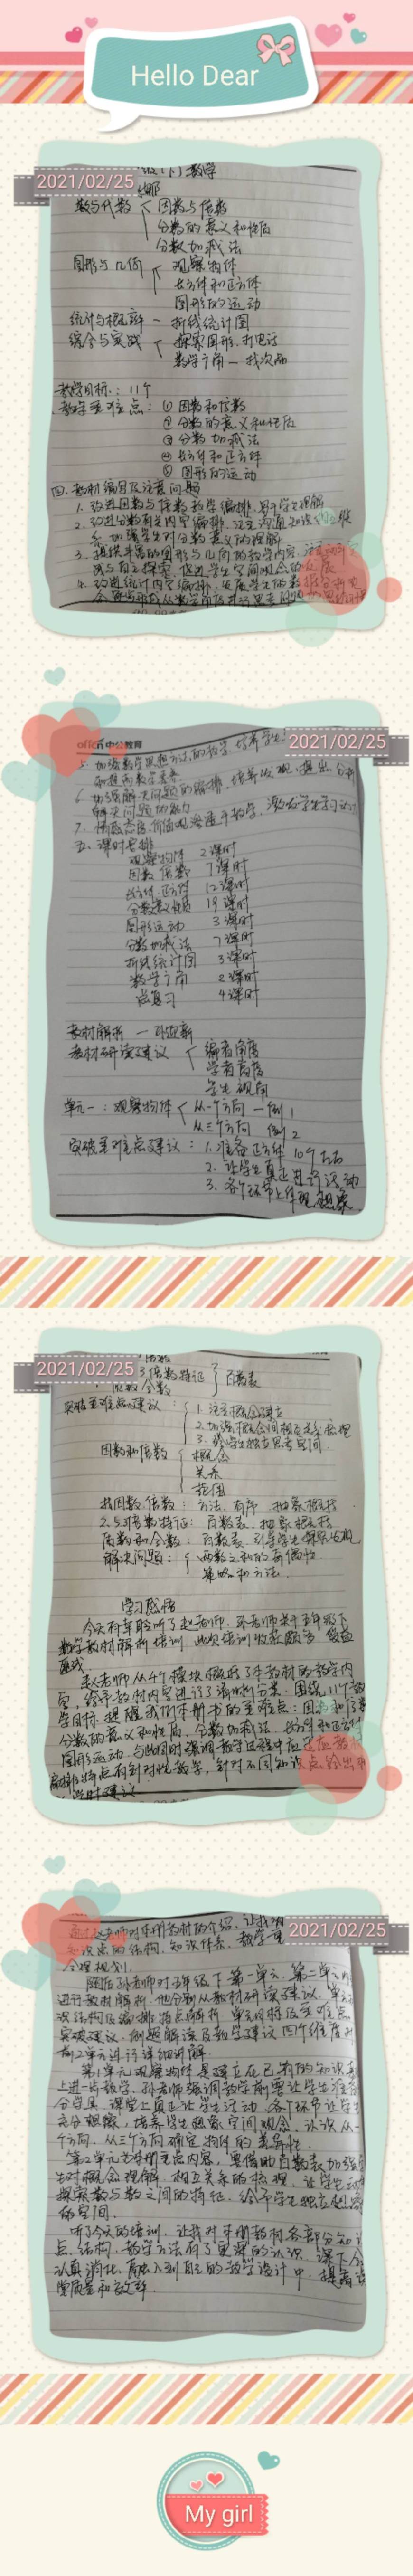 Hello Dear
2021/02/25
级(下)数学
数与代数 因数与倍数
分数的意义和性质
分数加减法
图形与几何 观察物体
长方体和正方体
图形的运动
统计与概率 — 折线统计图
综合与实践 探索图形，打电话
数学广角 — 找次品
教学目标：11个
教学重难点：① 因数和倍数
② 分数的意义和性质
③ 分数加减法
④ 长方体和正方体
⑤ 图形的运动
四.教材编写及注意问题
1. 改进因数与倍数教学编排，易于学生理解
2. 改进分数有关内容编排，注重沟通知识
系，加强学生对分数意义的理解
3. 提供丰富的图形与几何的教学内容，注重动手实
践与自主探索，促进学生空间观念的发展
4. 改进统计内容编排，发展学生的数据分析观
offcn中公教育
2021/02/25
5. 加强数学思想方法的教学，培养学生
6. 加强解决问题的编排，培养发现，提出，分析
解决问题的能力
7. 情感态度，价值观渗透于教学，激发学生学习
五.课时安排
观察物体 2课时
因数 倍数 7课时
长方体 正方体 12课时
分数意义性质 19课时
图形运动 3课时
分数加减法 7课时
折线统计图 3课时
数学广角 2课时
总复习 4课时
教材解析 —
教材研读建议 编者角度
学者角度
学生视角
单元一：观察物体 从一个方向 — 例1
从三个方向 例2
突破重难点建议：1. 准备正方体 10个左右
2. 让学生真正进行活动
3. 各个环节上体现想象
2021/02/25
3. 倍数特征 百数表
质数 合数
突破重难点建议：1. 注重概念建立
2. 加强概念间相互关系梳理
3. 给学生独立思考空间
因数和倍数 概念
关系
范围
找因数、倍数：方法，有序，抽象概括
2.5.3倍数特征：百数表，抽象概括
质数和合数：百数表，引导学生探索发现
解决问题：两数之和的奇偶性
策略和方法
学习感悟
今天有幸聆听了赵老师、孙老师关于五年级下
数学教材解析培训，此次培训收获颇多，受益
匪浅。
赵老师从4个模块梳理了本教材的教学内
容，给予教材内容进行了清晰的分类，围绕11个教
学目标，提醒我们本册书的重难点：因数和倍数
分数的意义和性质，分数加减法，长方体和正方体
图形运动，与此同时强调教学过程中应适应教材
编排特点有针对性教学，针对不同知识点，给出明
2021/02/25
通过赵老师对本册教材的介绍，让我明
知识点的结构，知识体系，教学重
合理规划。
随后孙老师对五年级下第一单元、第二单元内
进行教材解析，他分别从教材研读建议，单元
识结构及编排特点解析，单元目标及重难点
突破建议，例题解读及教学建议四个维度对
前2单元进行详细讲解。
第1单元观察物体是建立在已有的知识基
上进一步教学，孙老师强调教学前要让学生准备
分学具，课堂上真正让学生活动，各个环节让学生
充分想象，培养学生想象空间观念，认识从一
个方向，从三个方向确定物体的差异性。
第2单元是本册重点内容，要借助百数表加强
生对概念理解，相互关系的梳理，让学生动
探索数与数之间的特征，给予学生独立思考
的空间。
听了今天的培训，让我对本册教材各部分知识
点，结构，教学方法有了更深的认识，课下会
认真消化，融入到自己的教学设计中，提高课
堂质量和效率。
My girl